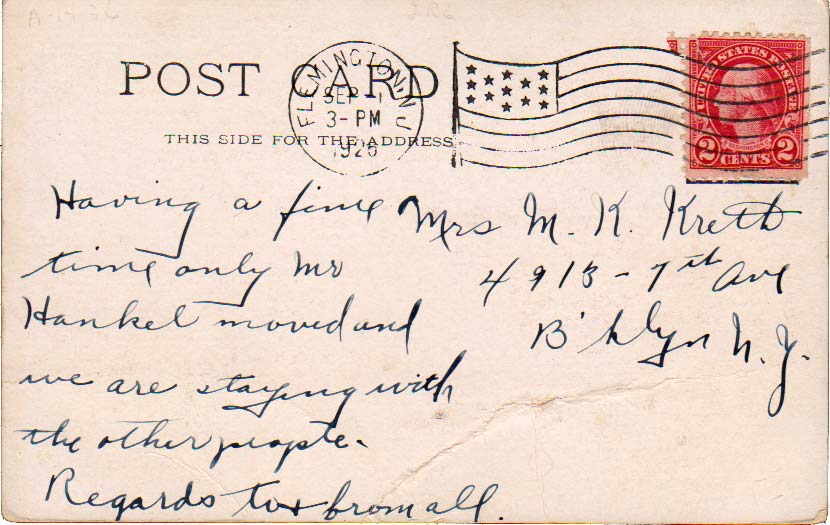 POST CARD
THIS SIDE FOR THE ADDRESS
FLEMINGTON, N J
SEP 1
3-PM
UNITED STATES POSTAGE
2 CENTS 2
Having a fine
time only Mr
Hankel moved and
we are staying with
the other people.
Regards to & from all.
Mrs M. K. Kreth
4913 - 7th Ave
B'klyn N.Y.